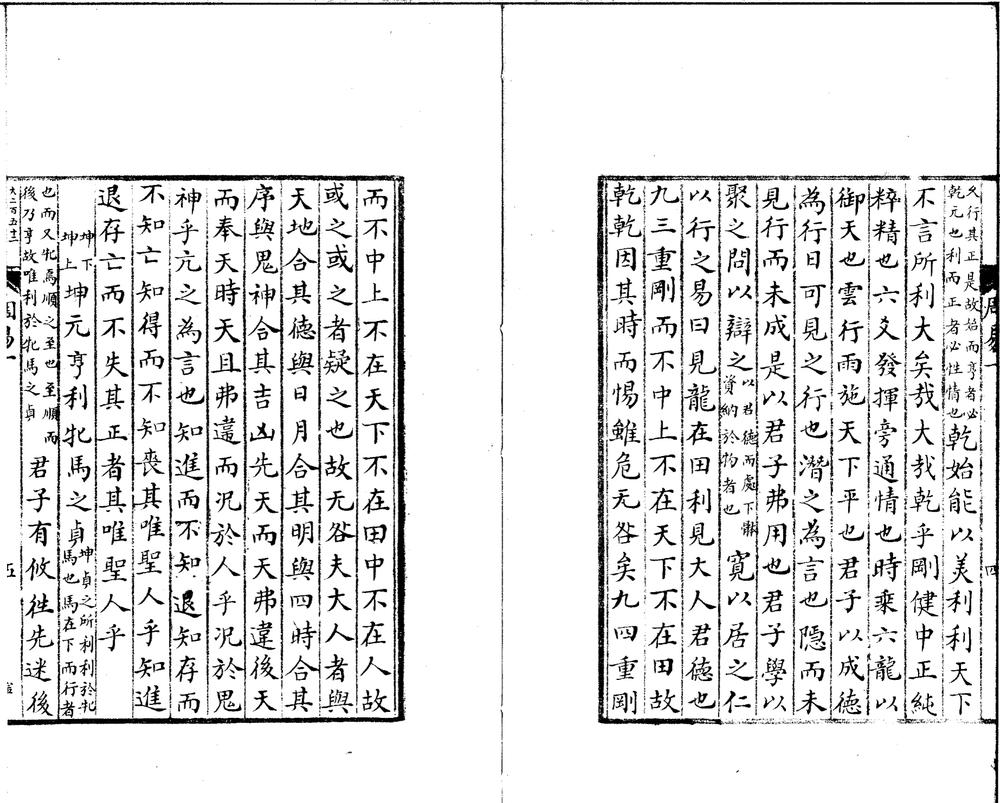 周易一
四
久行其正是故始而亨者必
乾元也利而正者必性情也
乾始能以美利利天下
不言所利大矣哉大哉乾乎剛健中正純
粹精也六爻發揮旁通情也時乘六龍以
御天也雲行雨施天下平也君子以成德
為行日可見之行也潛之為言也隱而未
見行而未成是以君子弗用也君子學以
聚之問以辯之
以君德而處下體
資納於物者也
寬以居之仁
以行之易曰見龍在田利見大人君德也
九三重剛而不中上不在天下不在田故
乾乾因其時而惕雖危无咎矣九四重剛
而不中上不在天下不在田中不在人故
或之或之者疑之也故无咎夫大人者與
天地合其德與日月合其明與四時合其
序與鬼神合其吉凶先天而天弗違後天
而奉天時天且弗違而況於人乎況於鬼
神乎亢之為言也知進而不知退知存而
不知亡知得而不知喪其唯聖人乎知進
退存亡而不失其正者其唯聖人乎
坤下
坤上
坤元亨利牝馬之貞
坤貞之所利利於牝
馬也馬在下而行者
也而又牝馬順之至也至順而
後乃亨故唯利於牝馬之貞
君子有攸往先迷後
周易一
五